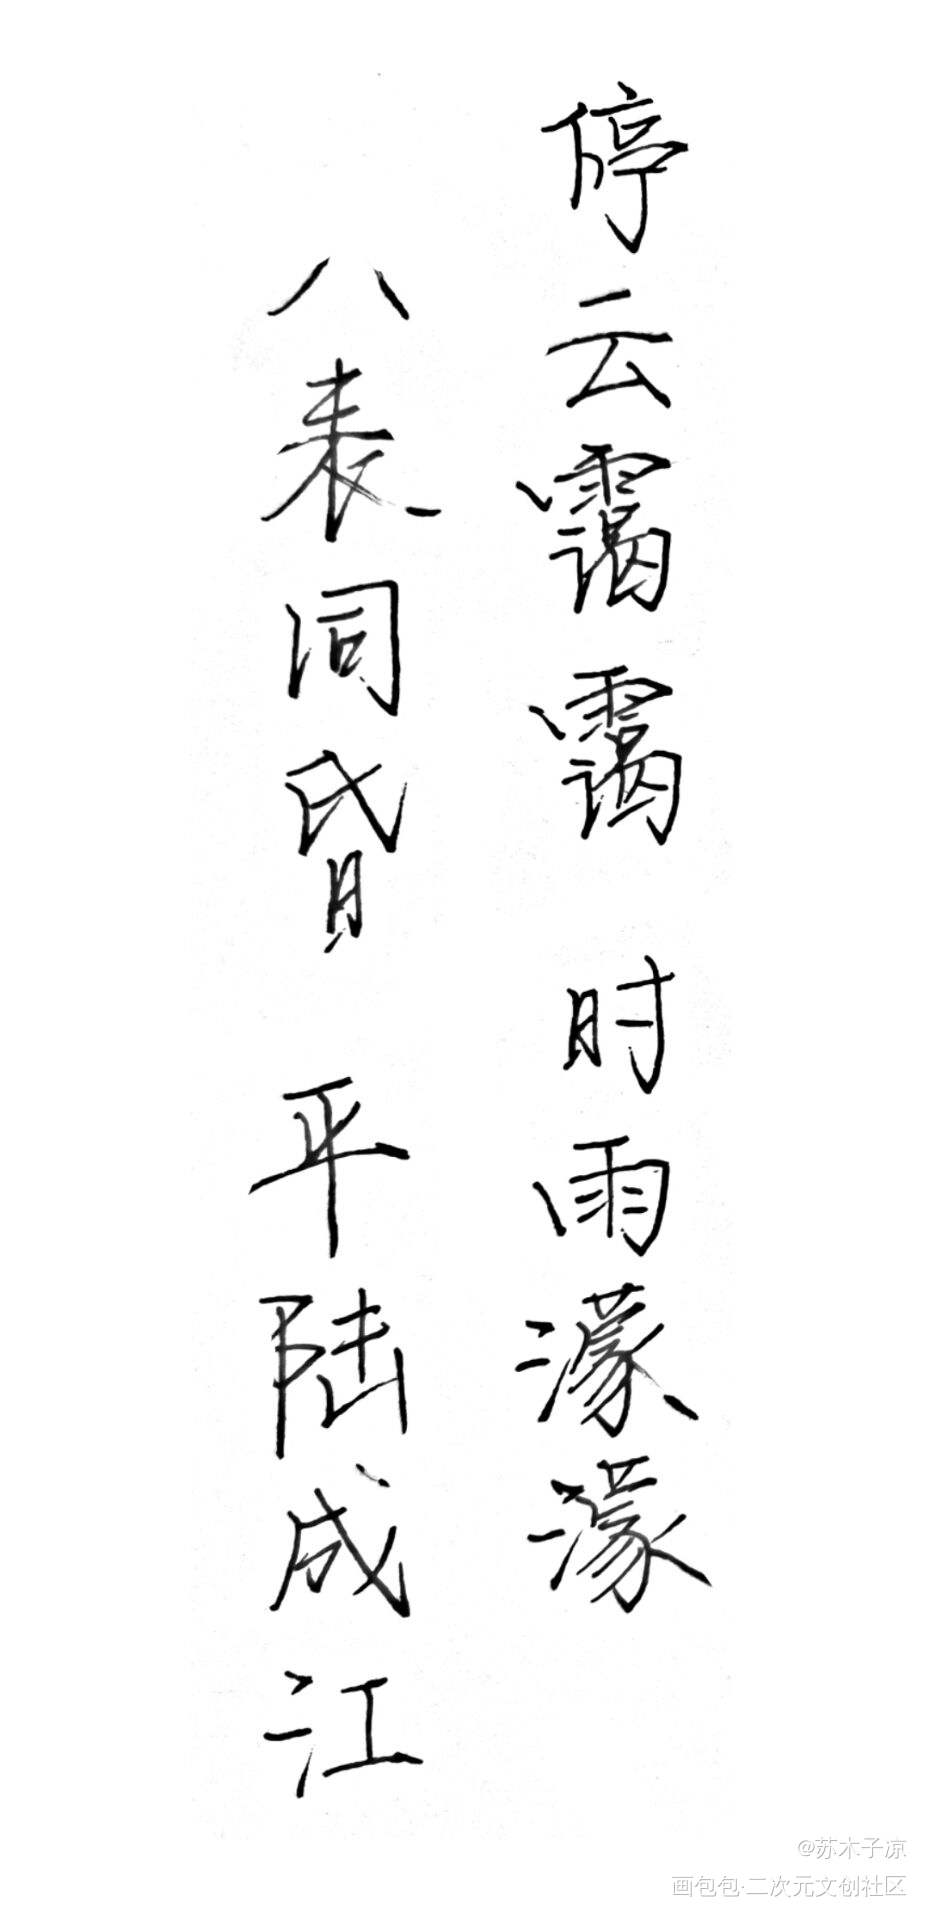 停云霭霭 时雨濛濛
八表同昏 平陆成江
@苏木子凉
画包包·二次元文创社区